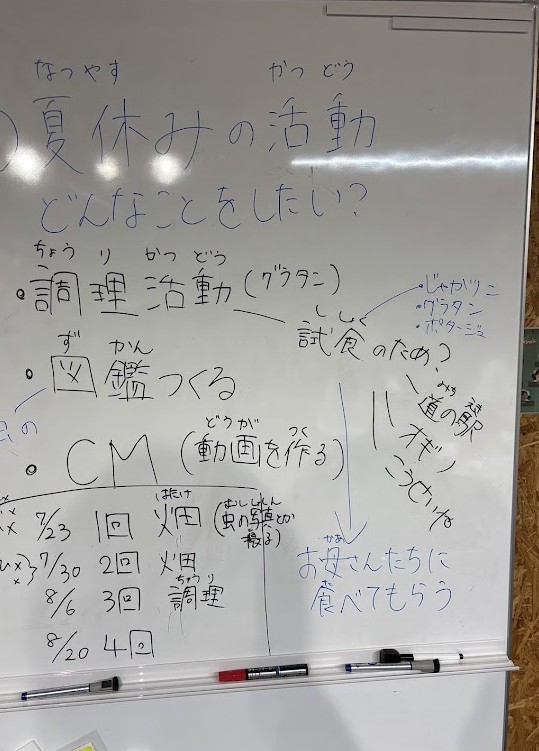 なつ やす かつ どう
夏休みの活動
どんなことをしたい?
ちょう り かつ どう
・調理活動(グラタン)
ししょく
試食のため?
・じゃがツニ
・グラタン
・ポタージュ
みち えき
道の駅
オギノ
ず かん
・図鑑つくる
どうが つく
・CM(動画を作る)
かあ
お母さんたちに
食べてもらう
はたけ むし しゃしん
7/23 1回 畑(虫の写真とか
撮る)
7/30 2回 畑
ちょうり
8/6 3回 調理
8/20 4回